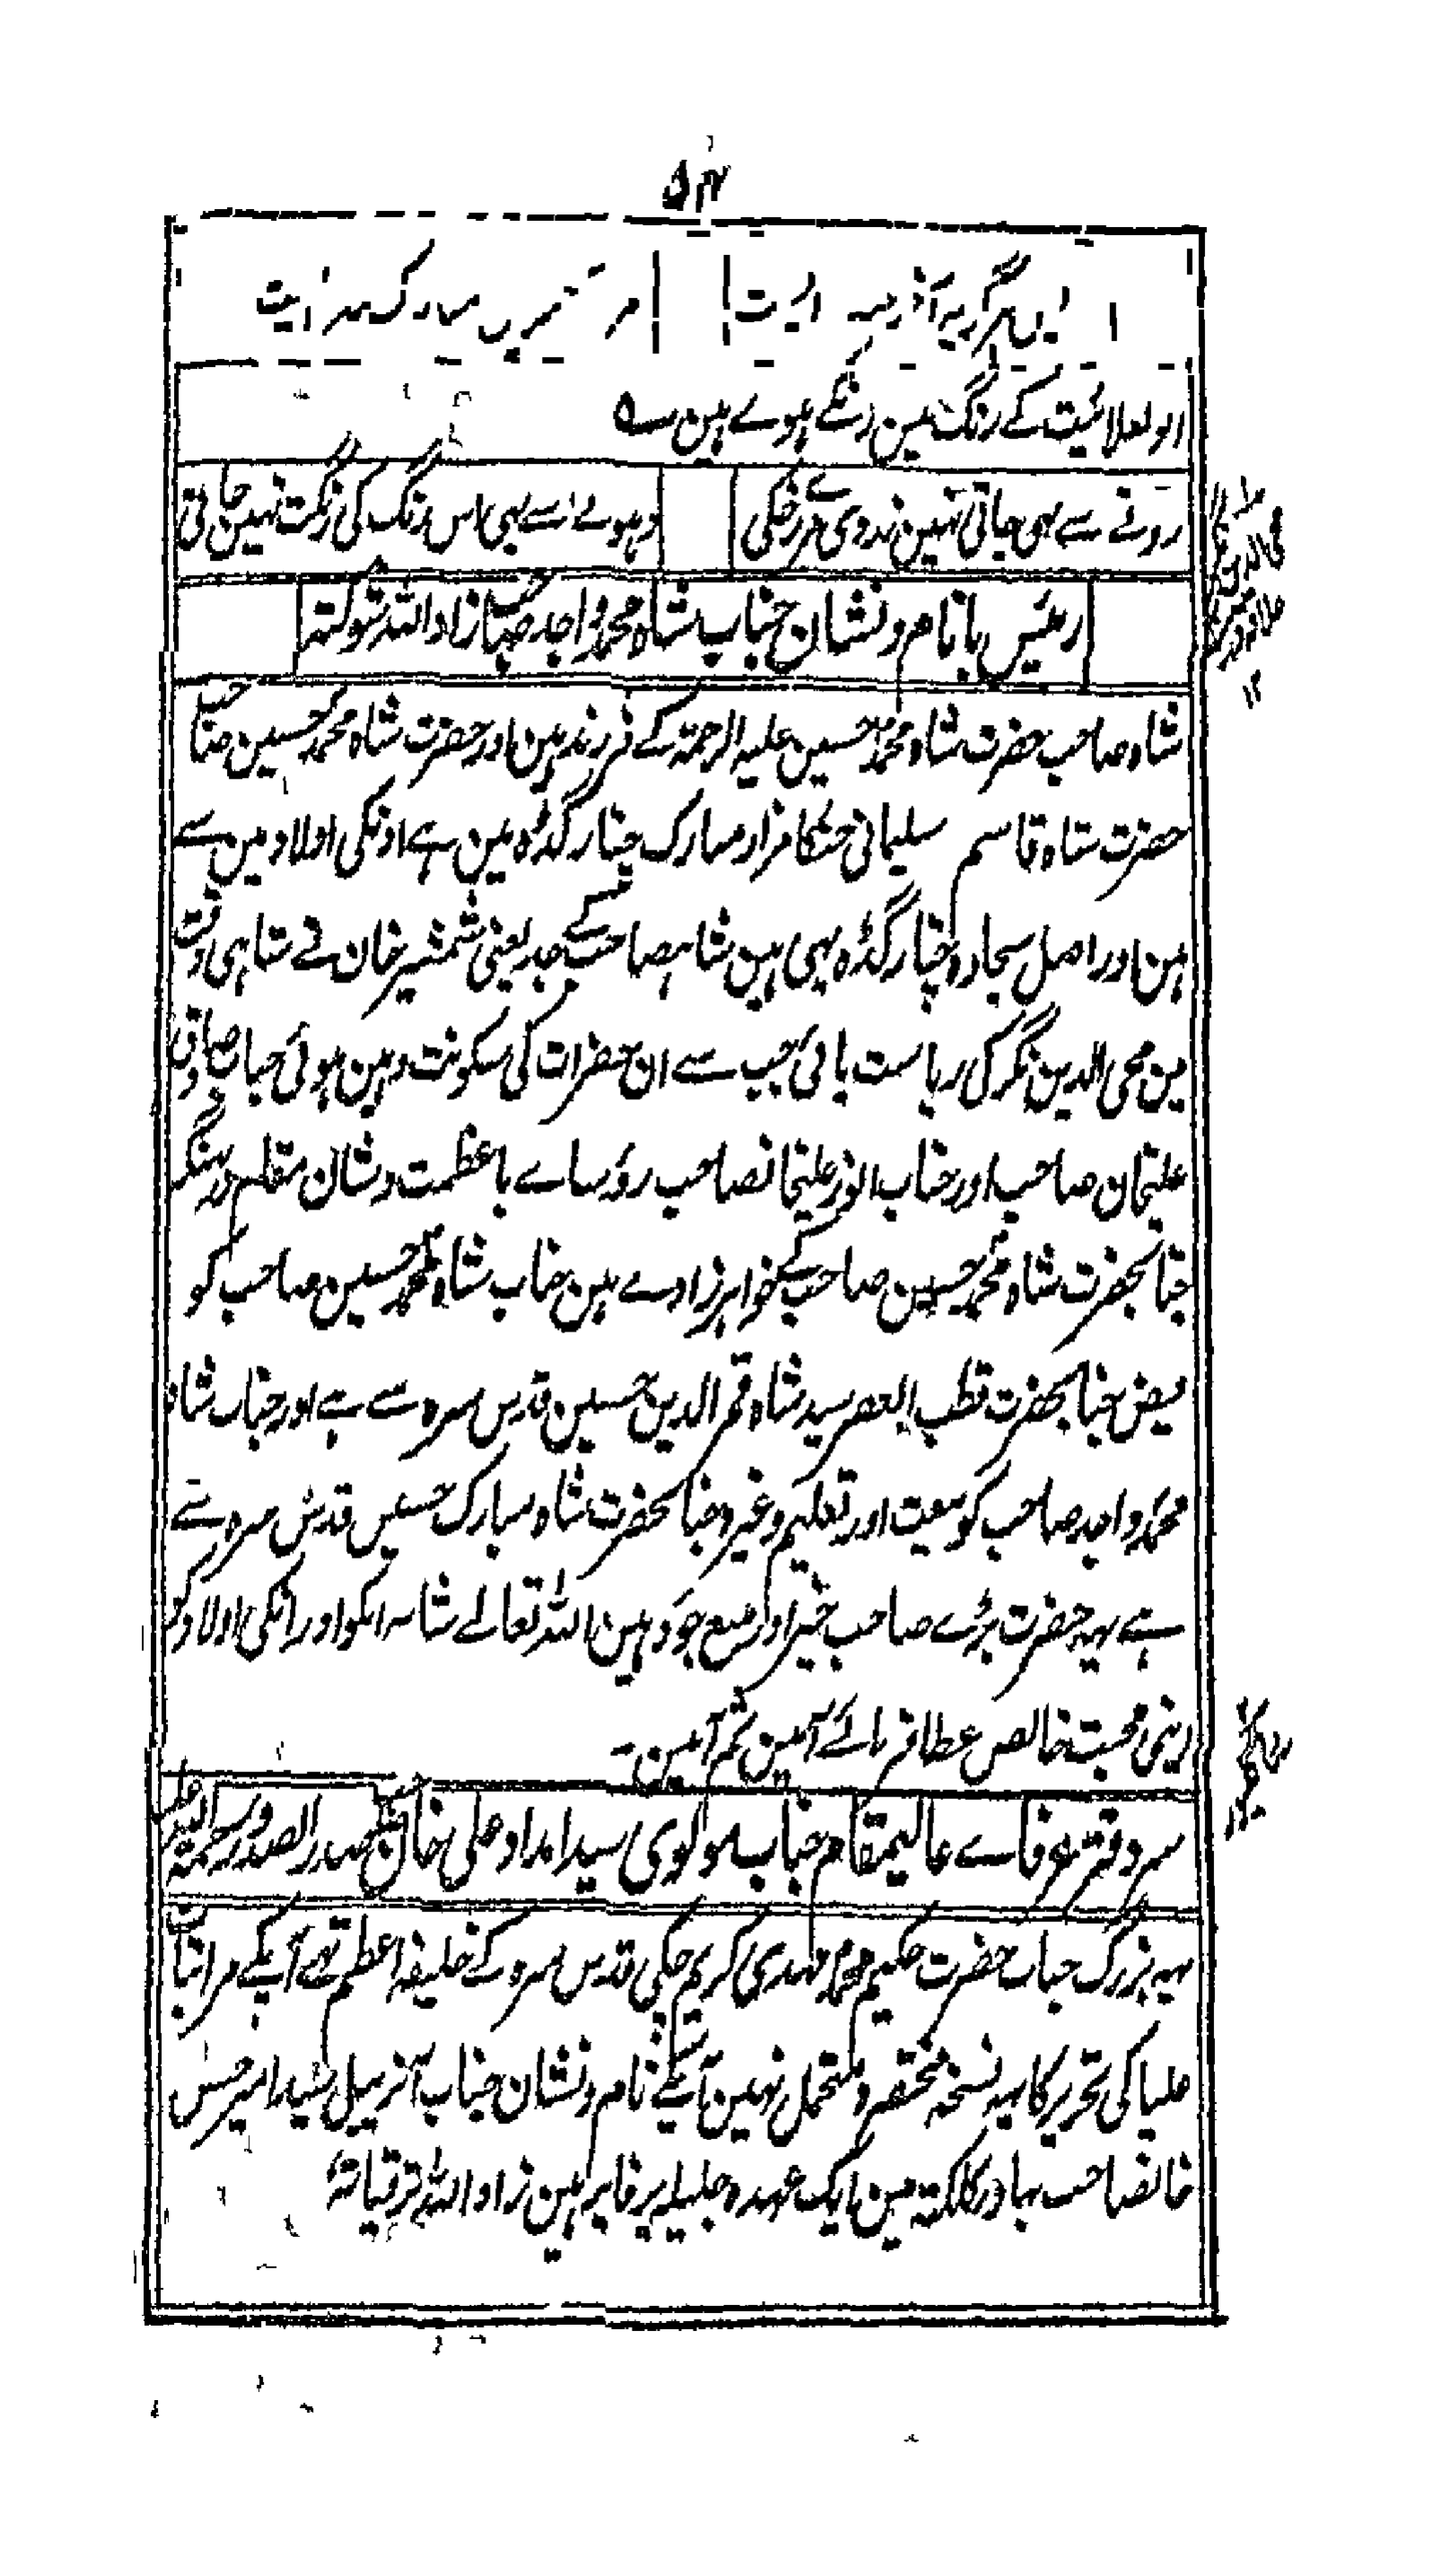 ۵۴
ابوالعلائیت کے رنگ مین رنگے ہوے ہین ؎
رونے سے بھی جاتی نہین زردی مرے رخ کی
دہوئے سے بہی اس رنگ کی رنگت نہین جاتی
رئیس بانام و نشان جناب شاہ محمد واجد صاحب زاد اللہ شوکتہ
شاہ صاحب حضرت شاہ محمد حسین علیہ الرحمۃ کے فرزند ہین اور حضرت شاہ محمد حسین صاحب
حضرت شاہ قاسم سلیمانی جنکا مزار مبارک چنار گڈہ مین ہے اونکی اولاد مین سے
ہین اور اصل سجادہ چنار گڈہ یہی ہین شاہصاحب کے جد یعنی شمشیر خان نے شاہی وقت
مین محی الدین نگر کی ریاست پائی جب سے ان حضرات کی سکونت وہین ہوئی جناب صادق
علیخان صاحب اور جناب انور علیخانصاحب رؤساے باعظمت و شان مقام
جنابحضرت شاہ محمد حسین صاحب کے خواہرزادے ہین جناب شاہ محمد حسین صاحب کو
فیض جنابحضرت قطب العصر سید شاہ قمر الدین حسین قدس سرہ سے ہے اور جناب شاہ
محمد واجد صاحب کو بیعت اور تعلیم وغیرہ جنابحضرت شاہ مبارک حسین قدس سرہ سے
ہے یہہ حضرت بڑے صاحب خیر اور منبع جود ہین اللہ تعالے شانہ انکو اور انکی اولاد کو
اپنی محبت خالص عطا فرمائے آمین ثم آمین۔
سر دفتر عرفاے عالیمقام جناب مولوی سید امداد علی خان صاحب صدر الصدور رحمۃ اللہ علیہ
یہہ بزرگ جناب حضرت حکیم محمد مہدی کریم چکی قدس سرہ کے خلیفہ اعظم تھے آپکے مراتبات
علیا کی تحریر کا یہہ نسخہ مختصر متحمل نہین آپکے نام و نشان جناب آنریبیل سید امیر حسین
خانصاحب بہادر کلکتہ مین ایک عہدہ جلیلہ پر فایز ہین زاد اللہ ترقیاتہ